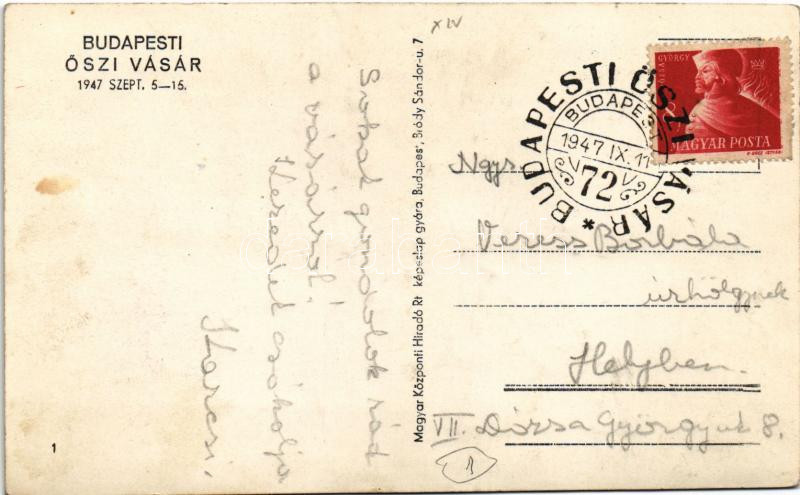 BUDAPESTI
ŐSZI VÁSÁR
1947 SZEPT. 5—15.
Sokat gondolok rád
a vásárról.
Kezedet csókolja
Karcsi.
1
Magyar Központi Híradó Rt képeslap gyára, Budapest, Bródy Sándor-u. 7
XIV
BUDAPESTI ŐSZI VÁSÁR *
BUDAPEST
1947 IX. 11
72
GYÖRGY
MAGYAR POSTA
Ngys.
Veress Borbála
úrhölgynek
Helyben.
VII. Dózsa György út 8.
1